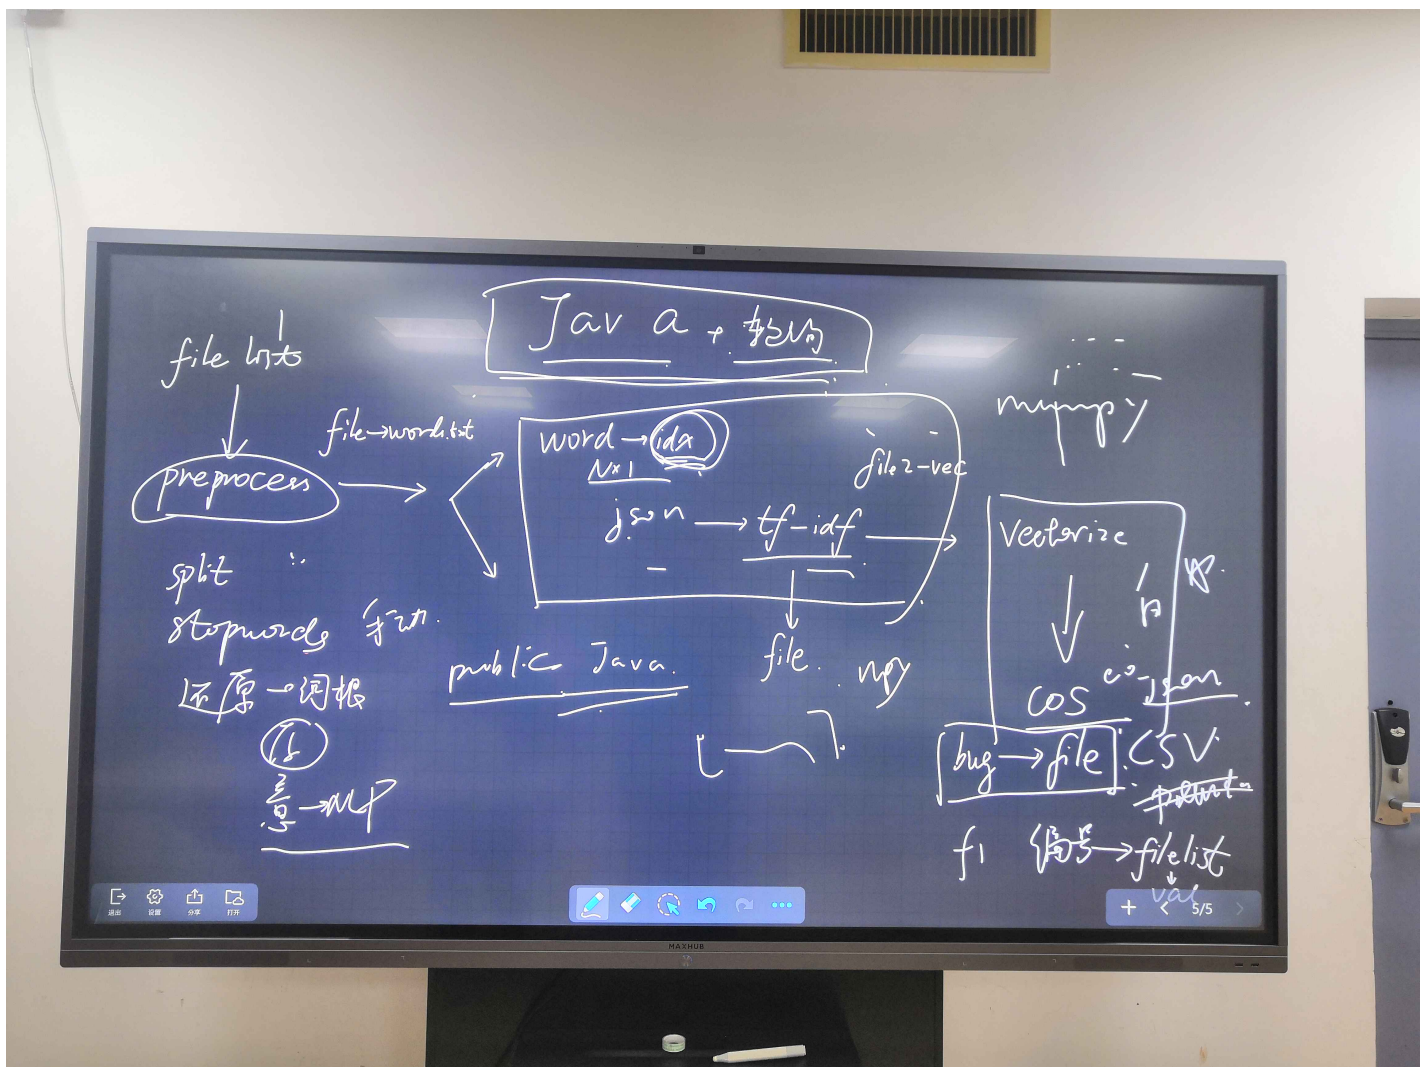 Java + 架构
file lists
preprocess
file→words.txt
split
stopwords 手动.
还原→词根
意→NLP
word→idx
N×1
json→tf-idf
file2-vec
file.
npy
public Java.
numpy
Vectorize
cos
json
bug→file
CSV
f1 编号→filelist
val
退出 设置 分享 打开
5/5
MAXHUB